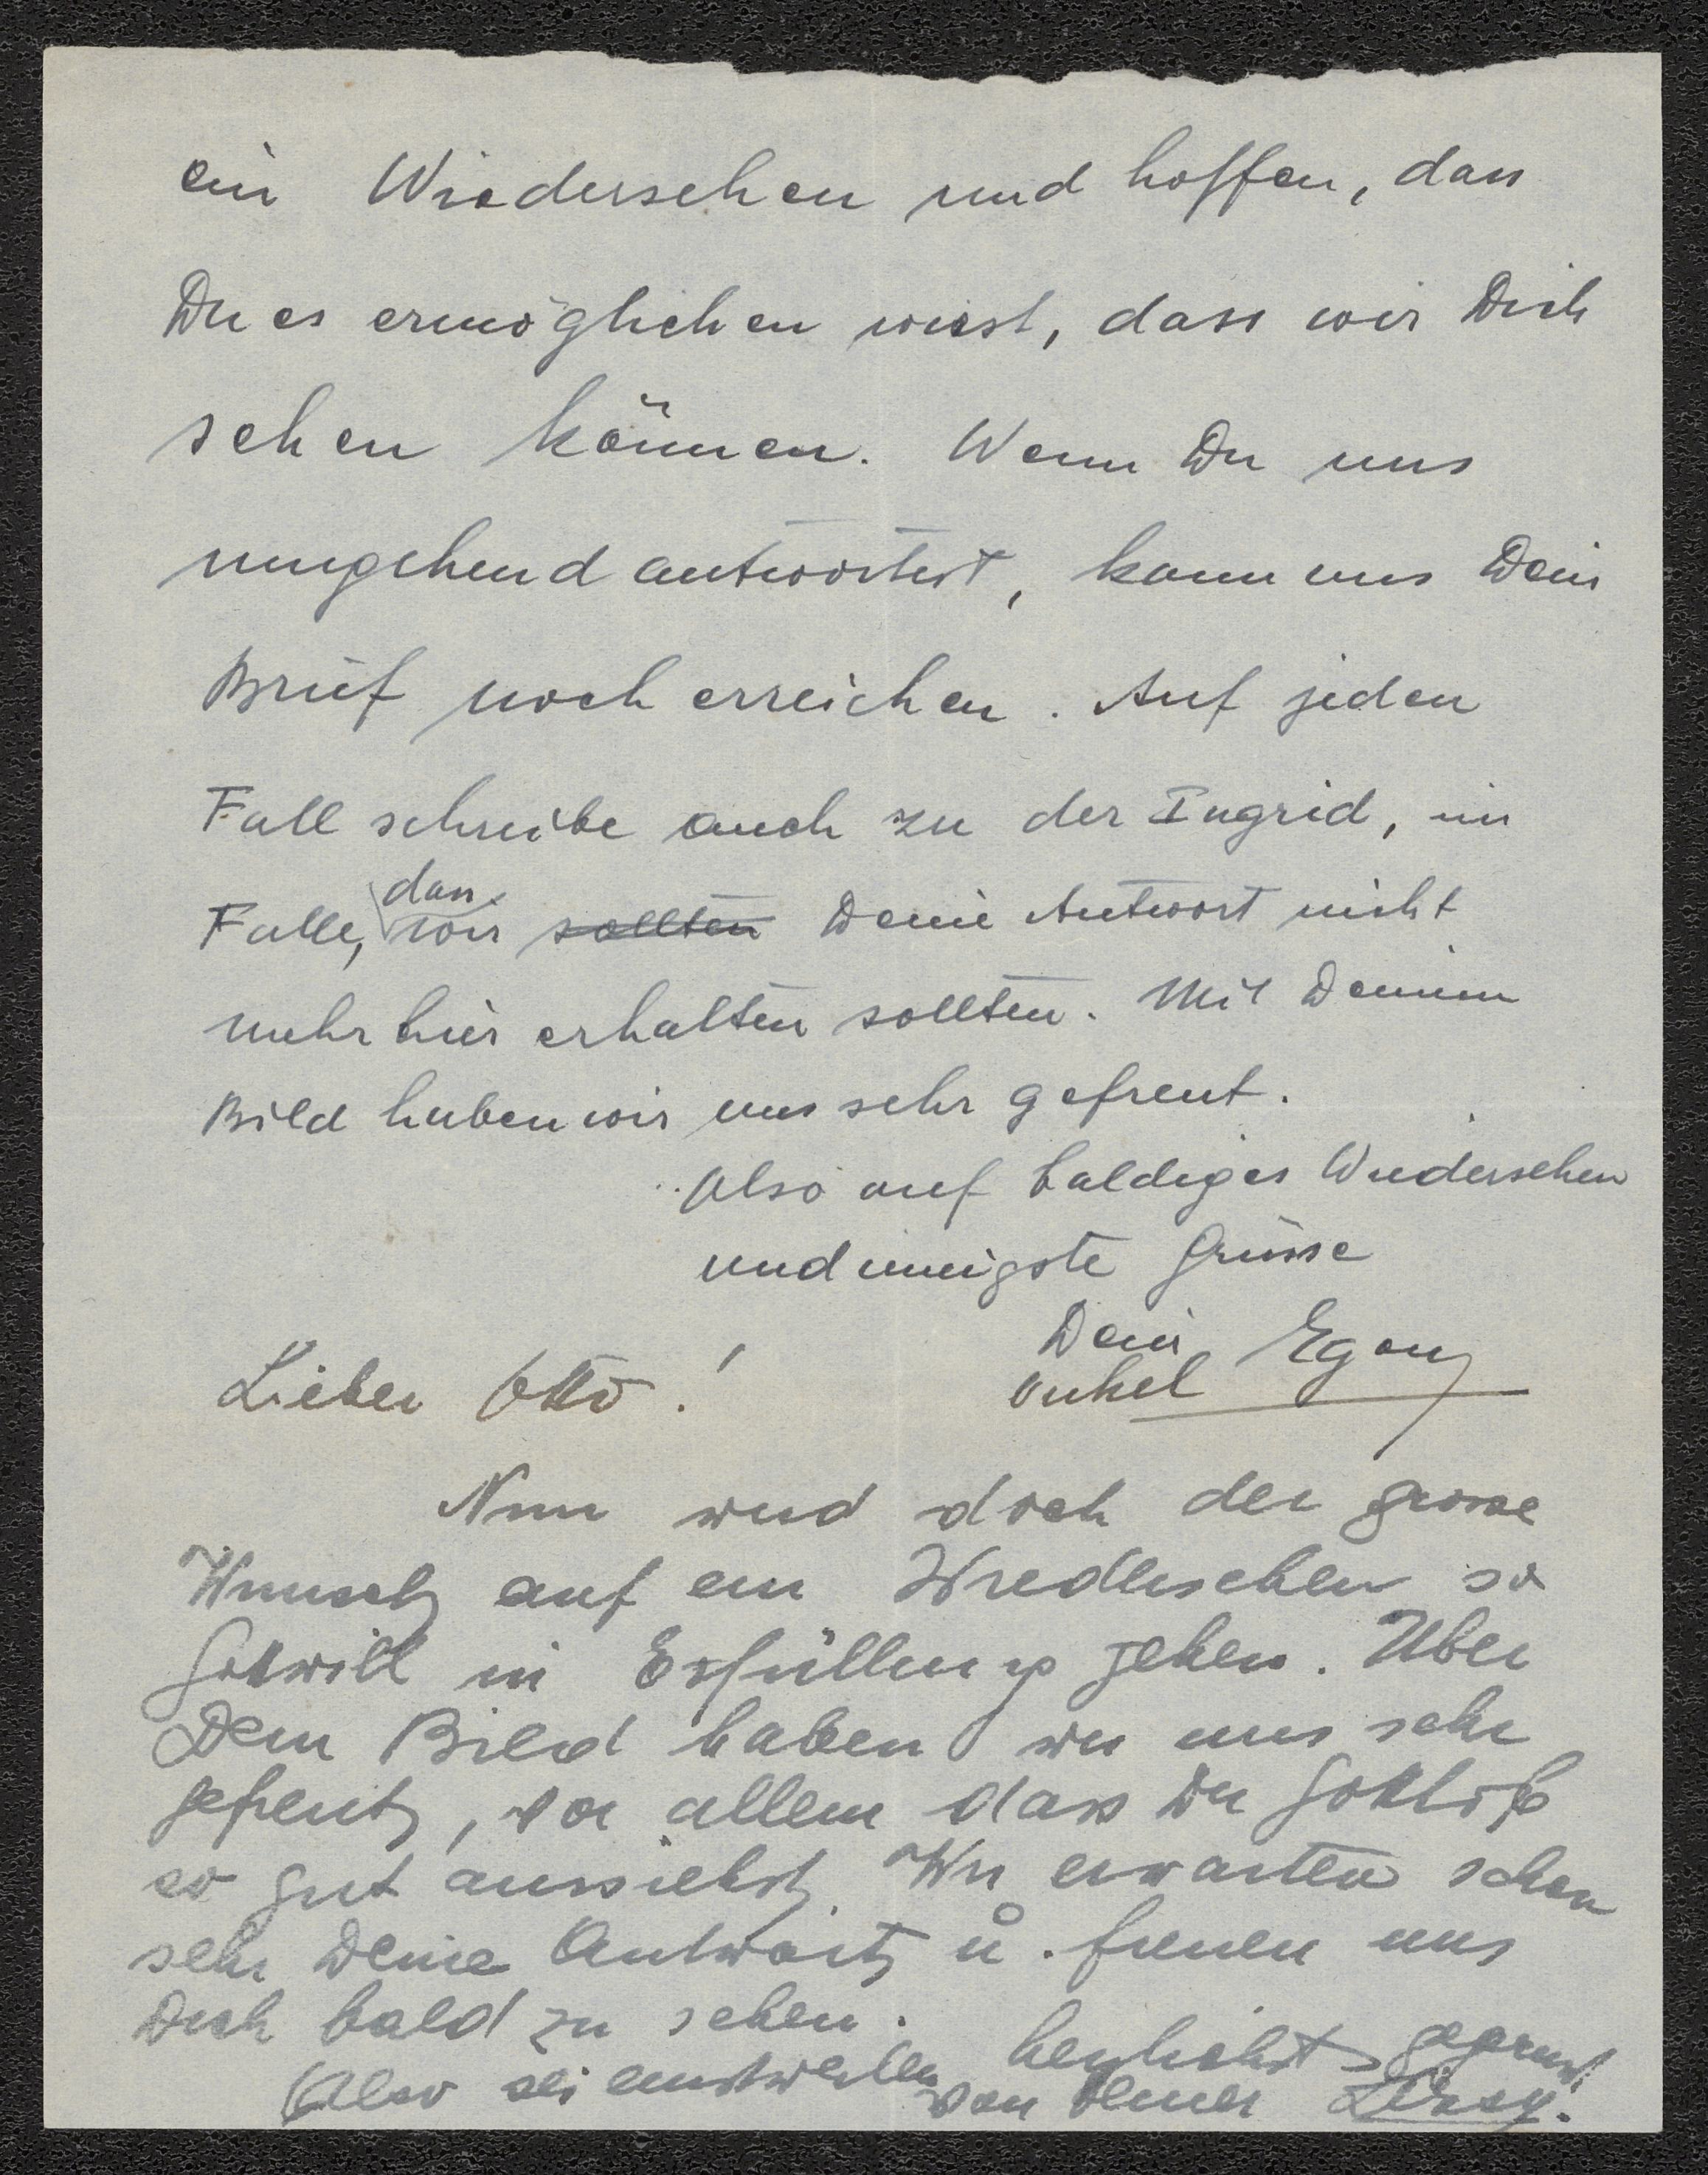 ein Wiedersehen und hoffen, dass
Du es ermöglichen wirst, dass wir Dich
sehen können. Wenn Du uns
umgehend antwortest, kann uns Dein
Brief noch erreichen. Auf jeden
Fall schreibe auch zu der Ingrid, im
Falle, dass wir sollten Deine Antwort nicht
mehr hier erhalten sollten. Mit Deinem
Bild haben wir uns sehr gefreut.
Also auf baldiges Wiedersehen
und innigste Grüsse
Dein
Onkel Egon
Lieber Otto!
Nun wird doch der grosse
Wunsch auf ein Wiedersehen so
Gottwill in Erfüllung gehen. Über
Dein Bild haben wir uns sehr
gefreut, vor allem dass Du Gottlob
so gut aussiehst. Wir erwarten schon
sehr Deine Antwort u. freuen uns
Dich bald zu sehen.
Also sei einstweilen herzlichst gegrüsst
von Deiner Lissy.